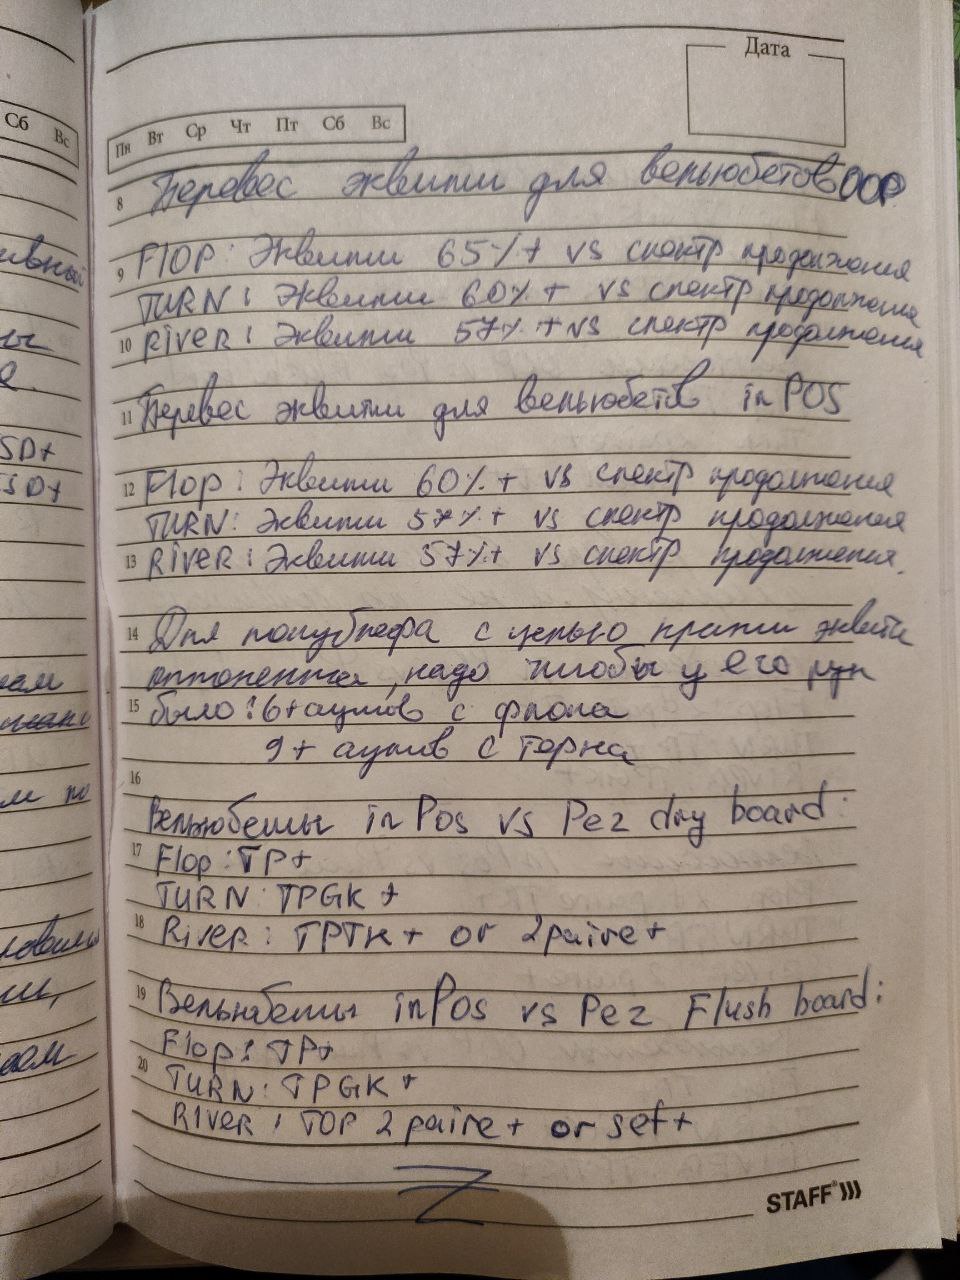 Дата
Сб Вс
Пн Вт Ср Чт Пт Сб Вс
8 Перевес эквити для вельюбетов OOP
9 Flop: Эквити 65%+ vs спектр продолжения
TURN: Эквити 60%+ vs спектр продолжения
10 River: Эквити 57%+ vs спектр продолжения
11 Перевес эквити для вельюбетов in POS
12 Flop: Эквити 60%+ vs спектр продолжения
TURN: Эквити 57%+ vs спектр продолжения
13 River: Эквити 57%+ vs спектр продолжения.
14 Для полублефа с целью кражи эквити
оппонента, надо чтобы у его рук
15 было: 6+ аутов с флопа
9+ аутов с терна
16
Вельюбеты in Pos vs Рег dry board:
17 Flop: TP+
TURN: TPGK +
18 River: TPTK+ or 2 paire+
19 Вельюбеты in Pos vs Рег Flush board:
Flop: TP+
20 TURN: TPGK +
River: TOP 2 paire+ or set+
STAFF®